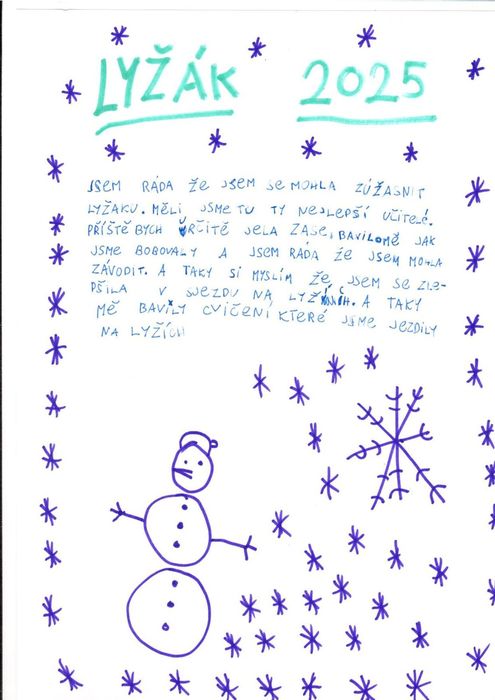 LYŽÁK 2025
JSEM RÁDA ŽE JSEM SE MOHLA ZÚŽASNIT
LYŽAKU. MĚLI JSME TU TY NEJLEPŠÍ UČITELÉ.
PŘÍŠTĚ BYCH URČITĚ JELA ZASE, BAVILOMĚ JAK
JSME BOBOVALY A JSEM RÁDA ŽE JSEM MOHLA
ZÁVODIT. A TAKY SI MYSLÍM ŽE JSEM SE ZLE-
PŠILA V SJEZDU NA LYŽÍCH. A TAKY
MĚ BAVILY CVIČENÍ KTERÉ JSME JEZDILY
NA LYŽÍCH